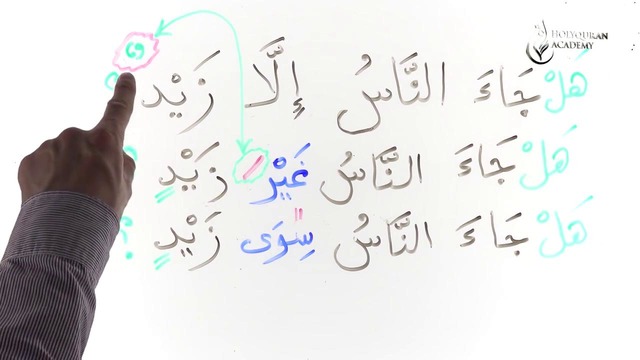 HOLYQURAN
ACADEMY
هَلْ جَاءَ النَّاسُ إِلَّا زَيْدٌ ؟
هَلْ جَاءَ النَّاسُ غَيْرَ زَيْدٍ ؟
هَلْ جَاءَ النَّاسُ سِوَى زَيْدٍ ؟